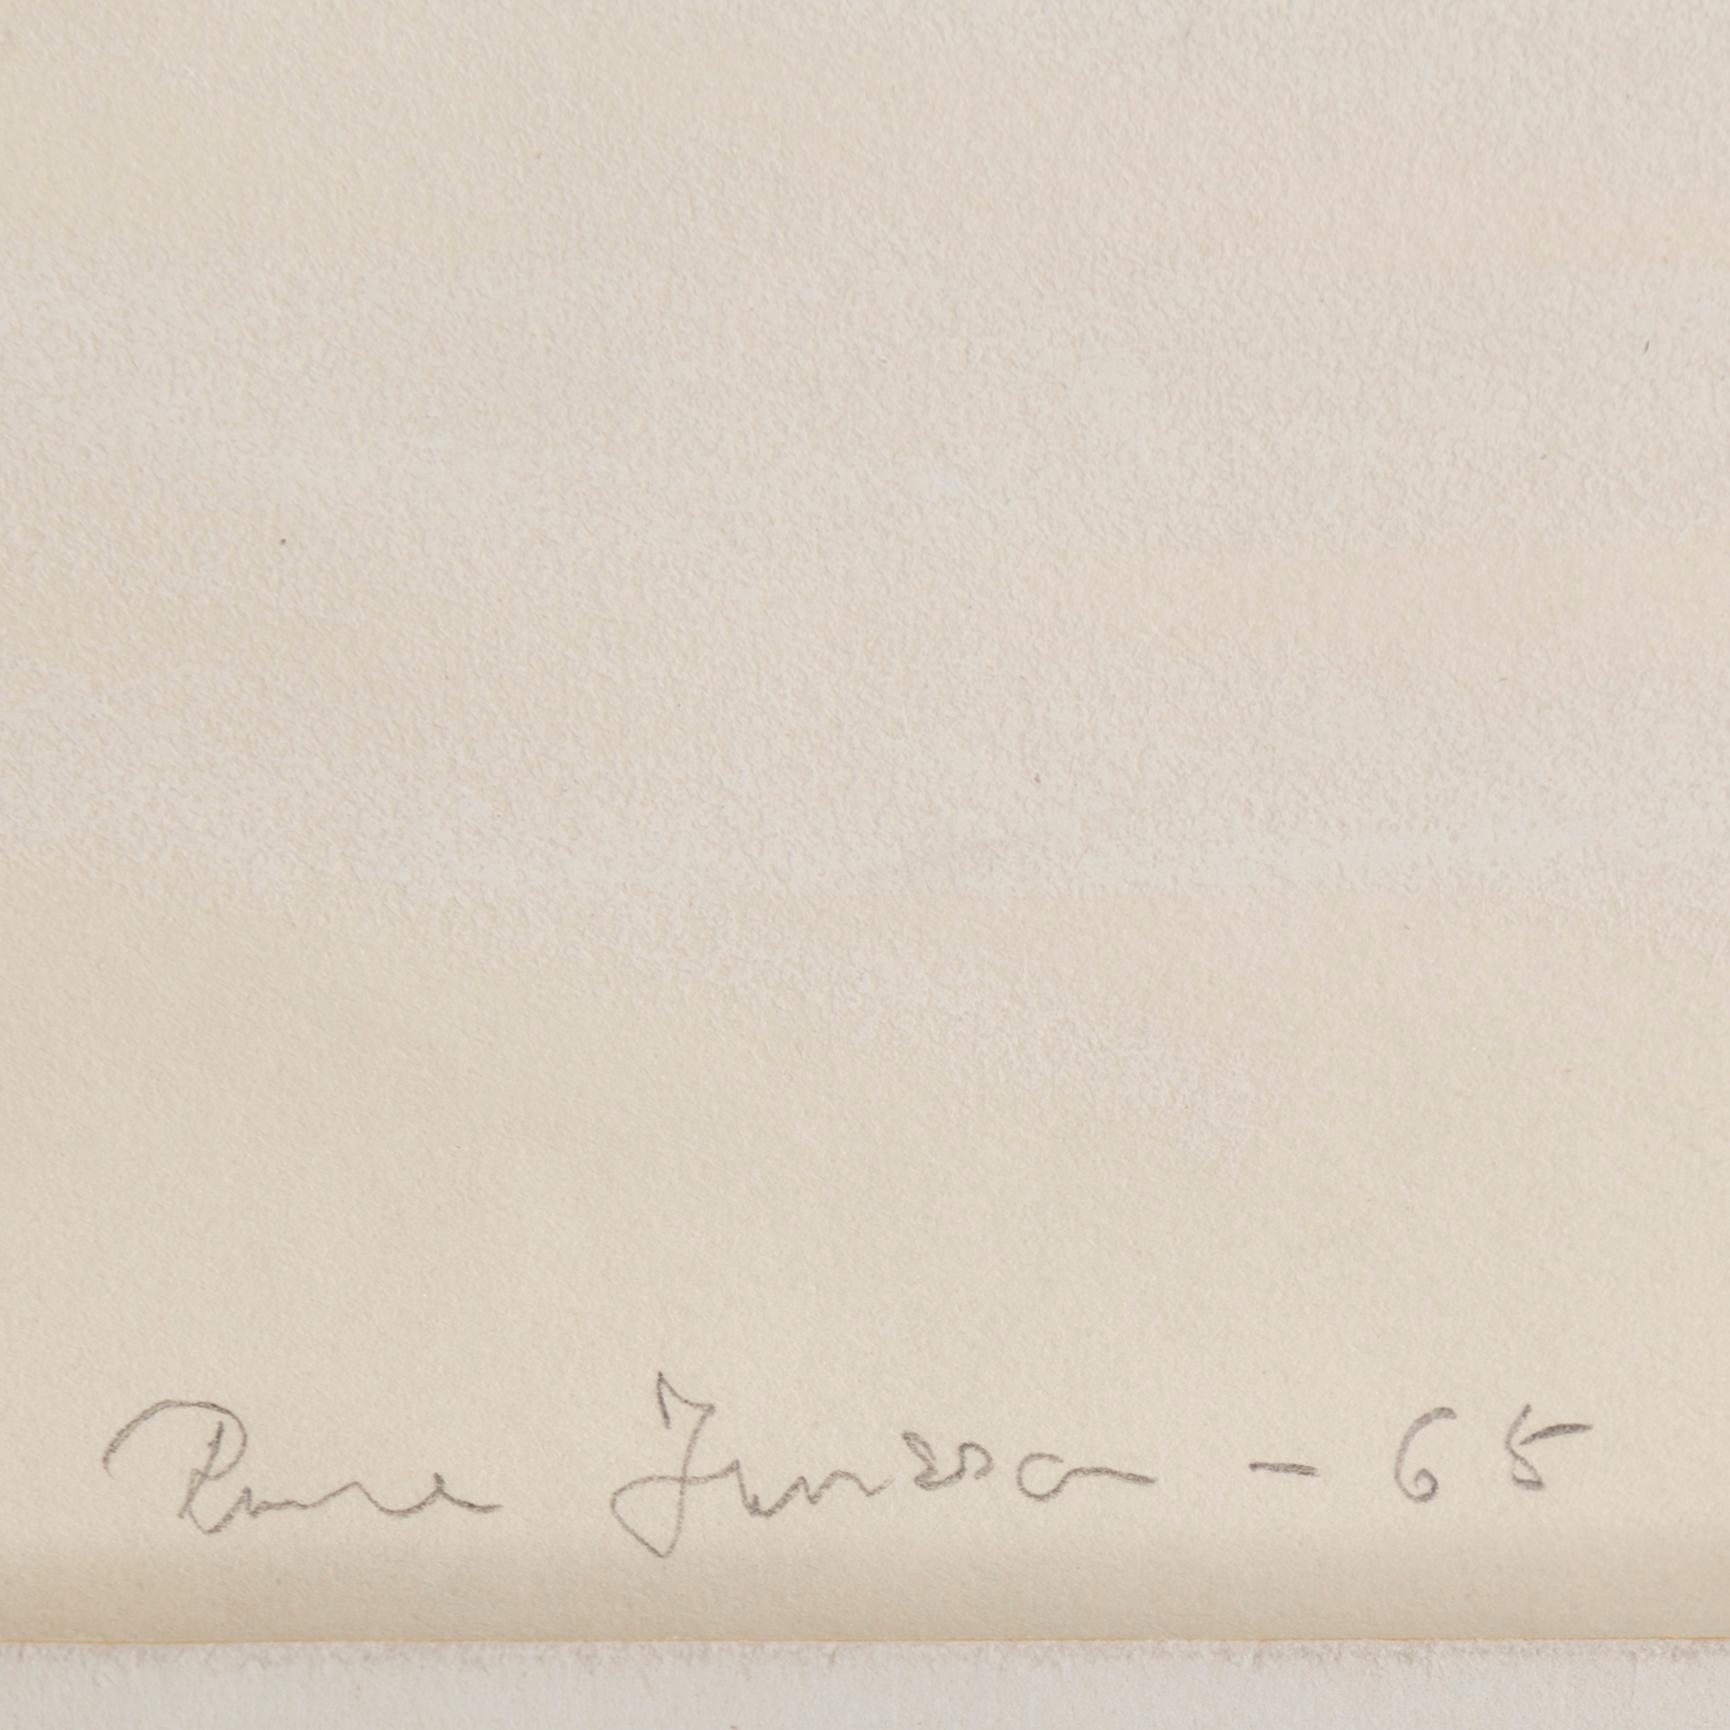 Rune Jansson - 65